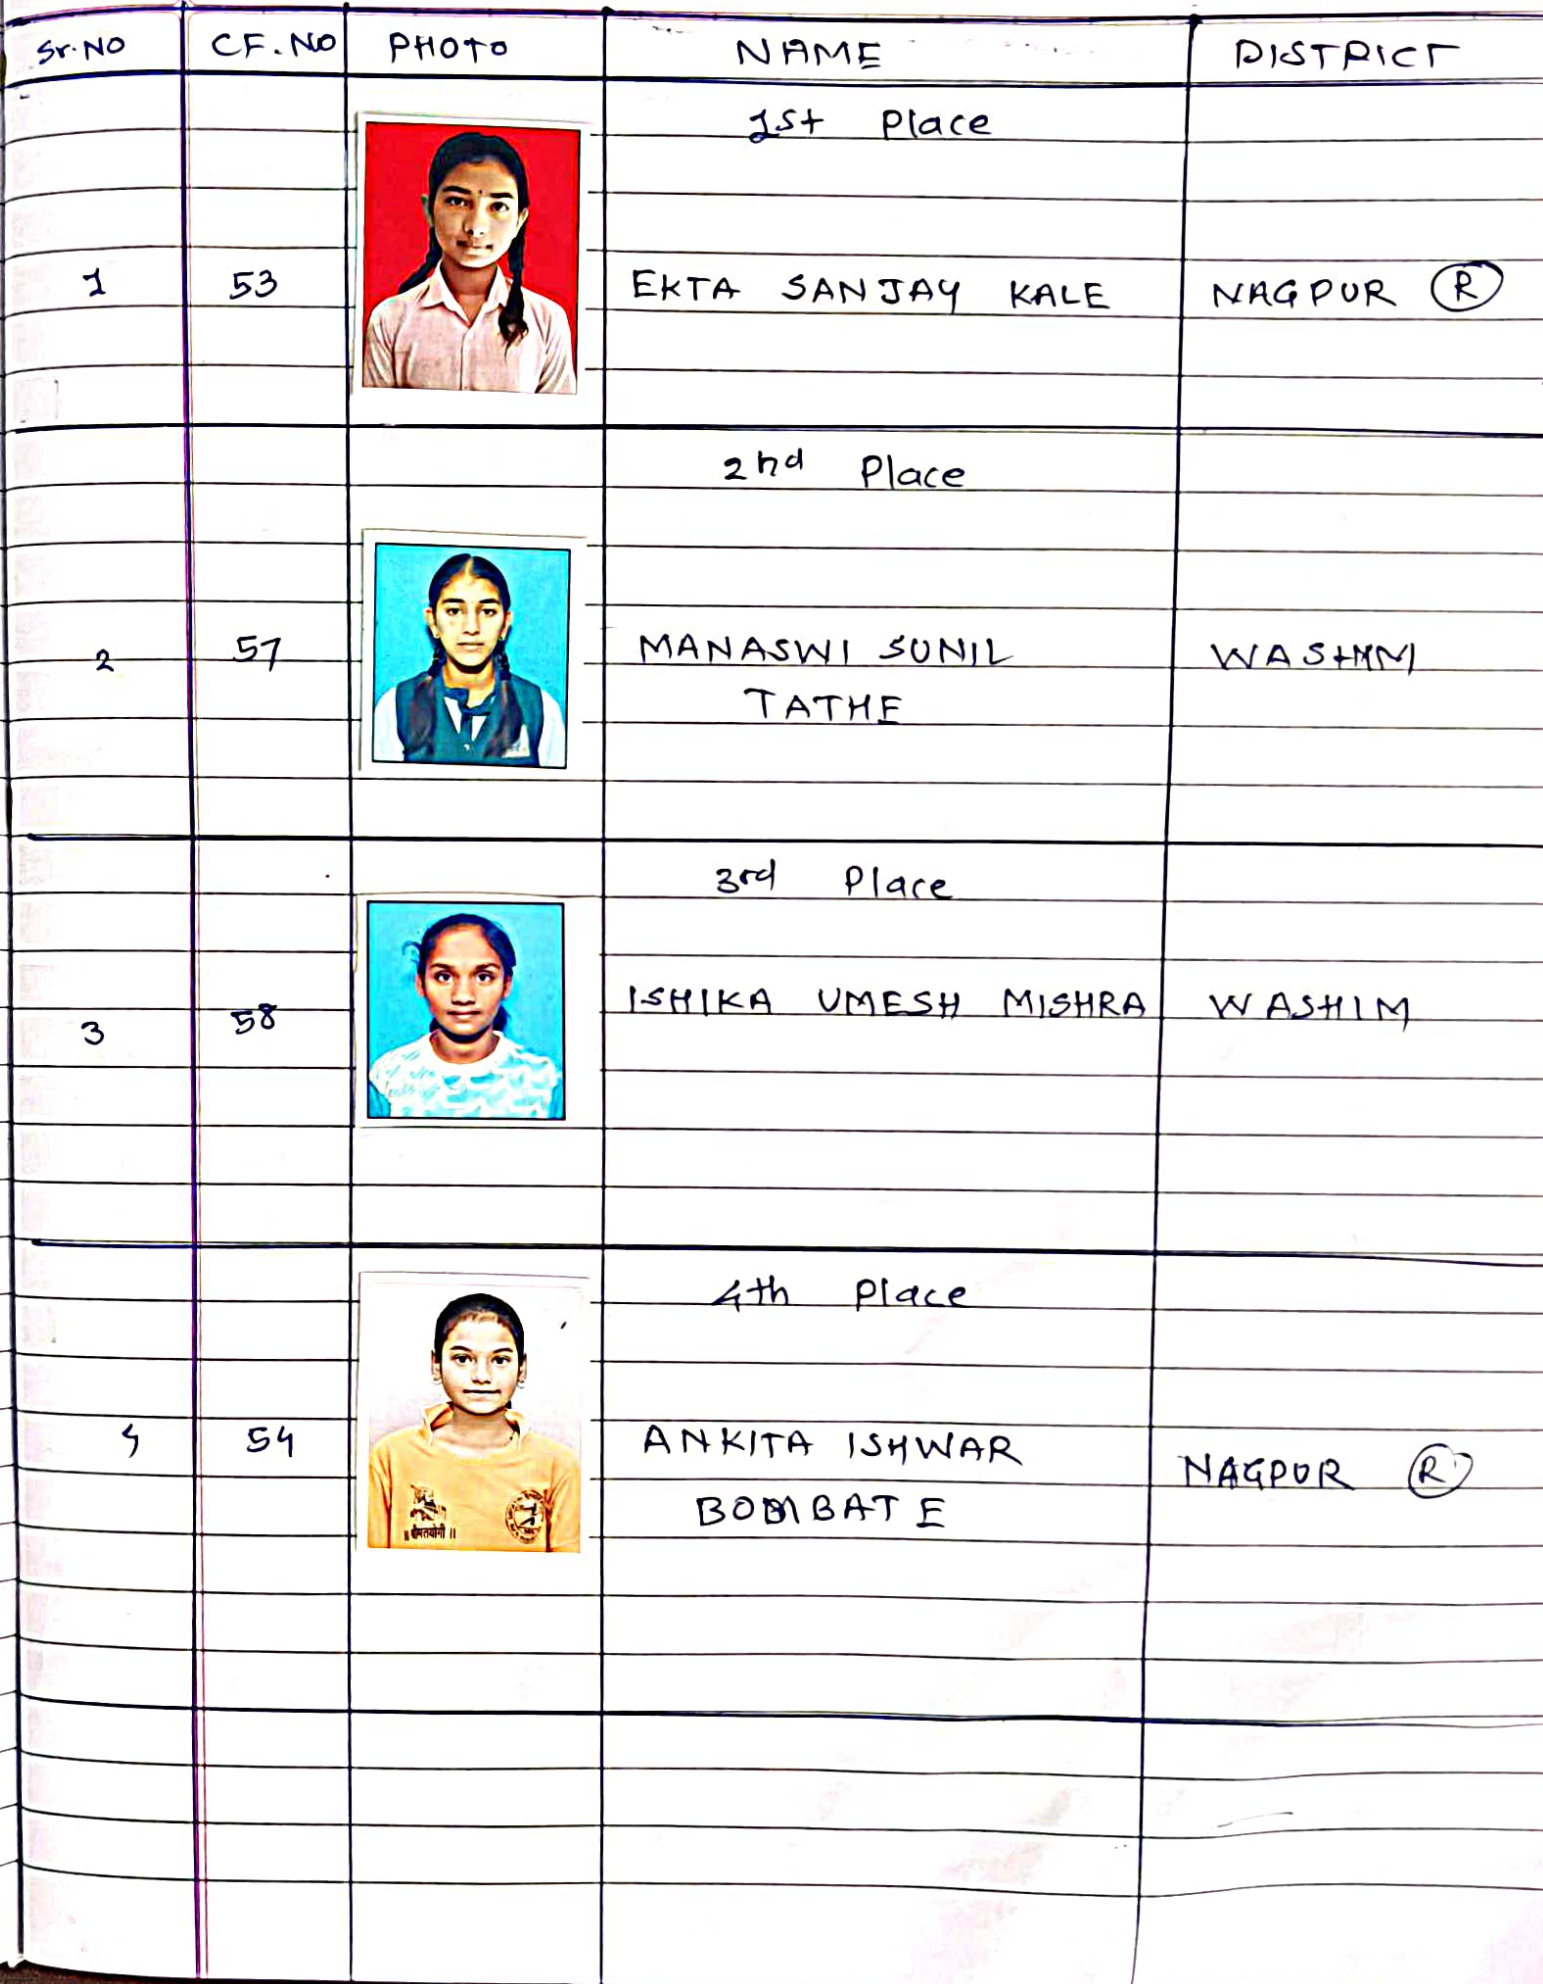 Sr.NO CF.NO PHOTO NAME DISTRICT
1st Place
1 53 EKTA SANJAY KALE NAGPUR R
2nd Place
2 57 MANASWI SUNIL WASHIM
TATHE
3rd Place
3 58 ISHIKA UMESH MISHRA WASHIM
4th Place
4 54 ANKITA ISHWAR NAGPUR R
BOMBATE